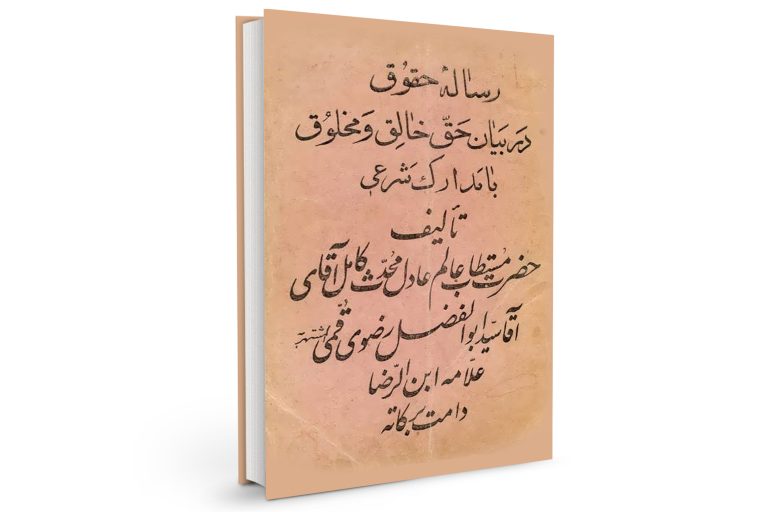 رسالهٔ حقوق
در بیان حَقّ خالِق وَ مخلوُق
با مَدارک شَرعی
تألیف
حضرت مُستطاب عالم عادل محدّث کامل آقای
آقا سیّد ابوالفضل رضوی قُمی مشتهر به
علّامه ابن الرّضا
دامت برکاته